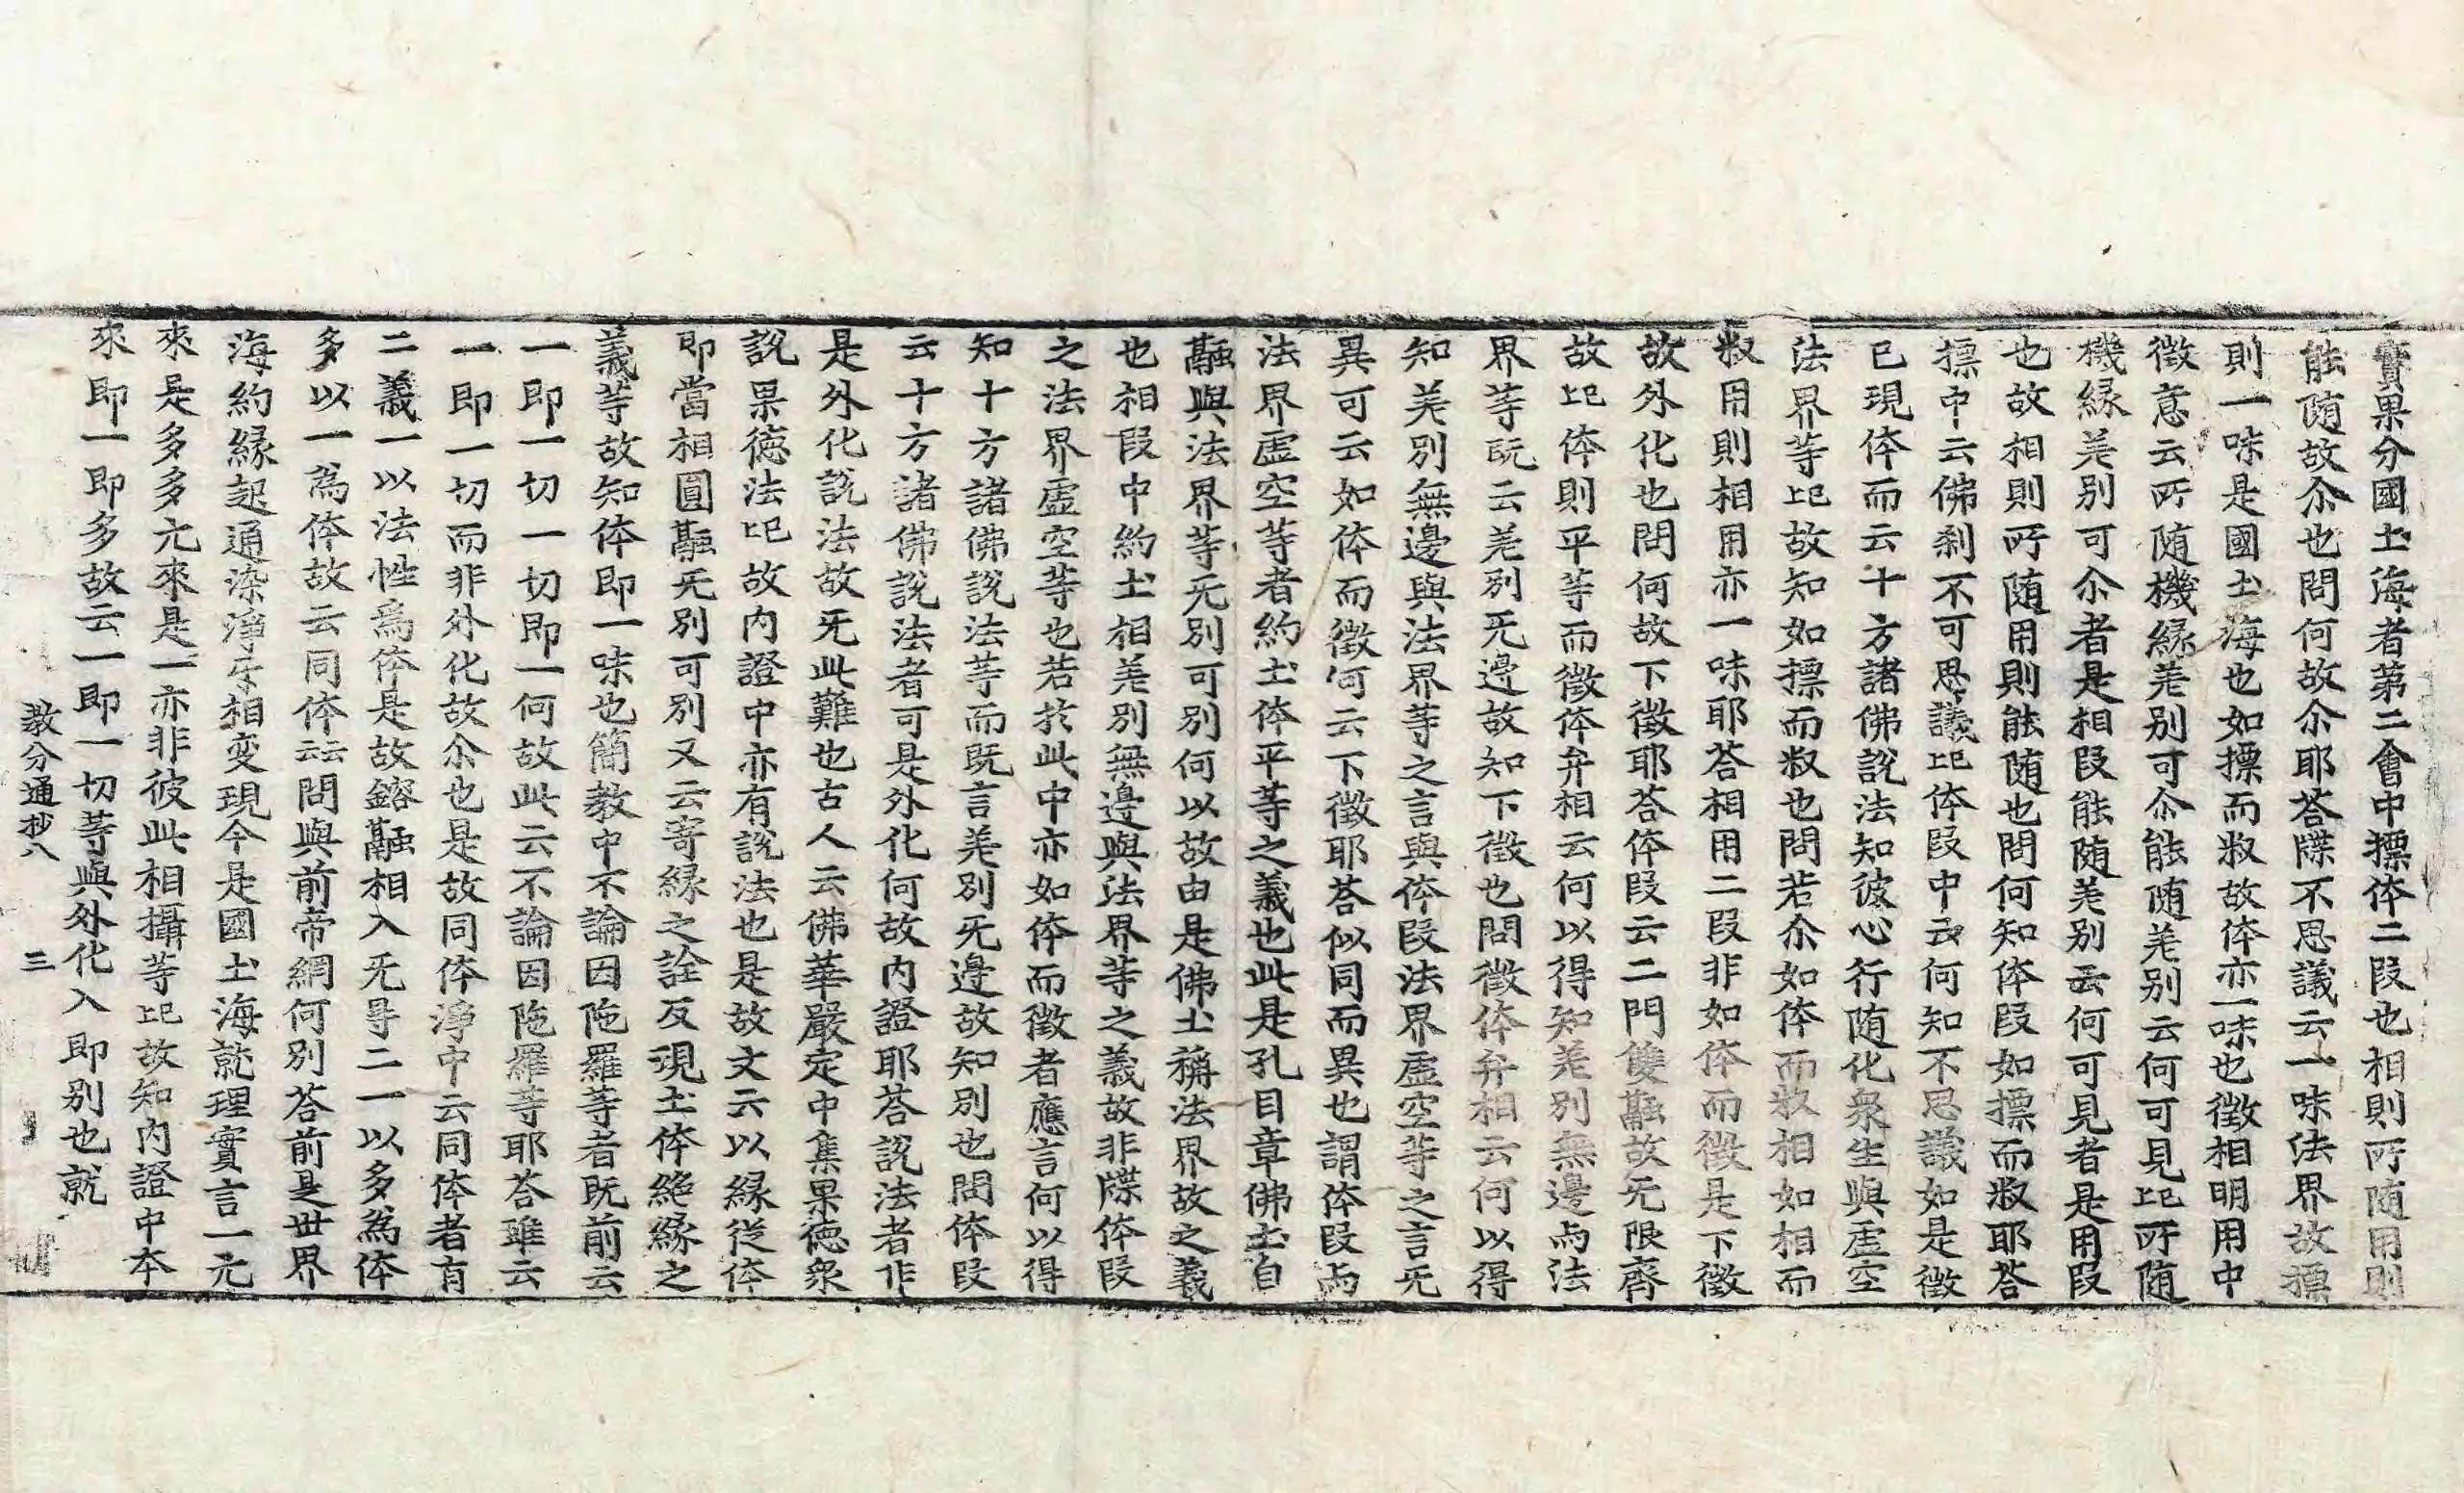 實果分國土海者第二會中摽体二段也相則所随用則
能随故尒也問何故尒耶荅牒不思議云一味法界故摽
則一味是國土海也如摽而𭣣故体亦一味也徵相明用中
徵意云所随機縁羌别可尒能随羌别云何可見䛊所随
機縁羌别可尒者是相段能随羌别云何可見者是用段
也故相則所随用則能随也問何知体段如摽而𭣣耶荅
摽中云佛刹不可思議䛊体段中云何知不思議如是徵
已現体而云十方諸佛說法知彼心行随化衆生與虛空
法界等䛊故知如摽而𭣣也問若尒如体而𭣣相如相而
𭣣用則相用亦一味耶荅相用二段非如体而徵是下徵
故外化也問何故下徵耶荅体段云二門雙融故无限齊
故䛊体則平等而徵体弁相云何以得知羌别無邊与法
界等既云羌别无邊故知下徵也問徵体弁相云何以得
知羌别無邊與法界等之言與体段法界虛空等之言无
異可云如体而徵何云下徵耶荅似同而異也謂体段与
法界虛空等者約土体平等之義也此是孔目章佛土自
融與法界等无别可别何以故由是佛土稱法界故之義
也相段中約土相羌别無邊與法界等之義故非牒体段
之法界虛空等也若扵此中亦如体而徵者應言何以得
知十方諸佛說法等而既言羌别无邊故知别也問体段
云十方諸佛說法者可是外化何故内證耶荅說法者非
是外化說法故无此難也古人云佛華嚴定中集果徳衆
說果徳法䛊故内證中亦有說法也是故文云以縁從体
即當相圓融无别可别又云寄縁之詮反現土体絶縁之
義等故知体即一味也簡教中不論因陁羅等者既前云
一即一切一切即一何故此云不論因陁羅等耶荅雖云
一即一切而非外化故尒也是故同体淨中云同体者有
二義一以法性爲体是故鎔融相入无㝵二一以多為体
多以一為体故云同体云云問與前帝網何别荅前是世界
海約縁起通染淨互相变現今是國土海就理實言一元
來是多多元來是一亦非彼此相攝等䛊故知内證中本
來即一即多故云一即一切等與外化入即别也就
教分通抄八 三